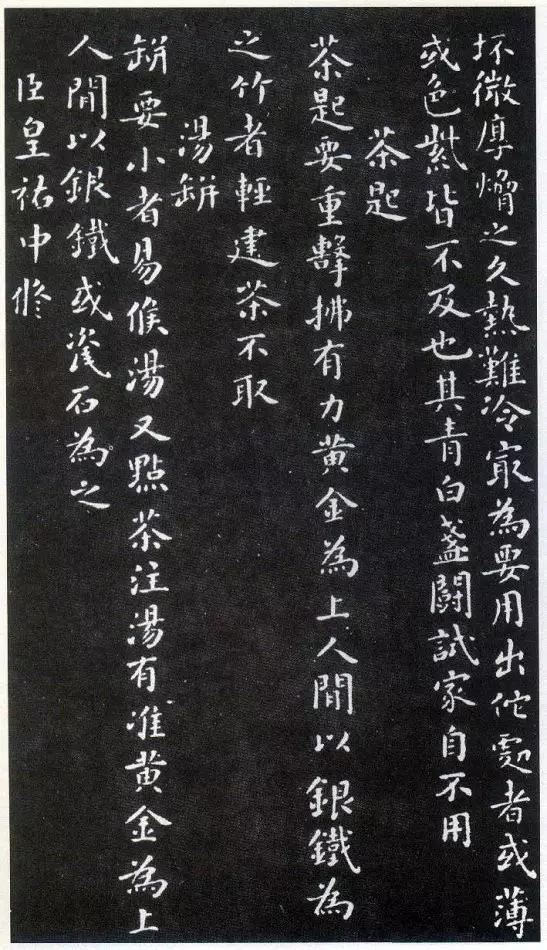 坏微厚熁之久熱難冷㝡為要用出佗處者或薄
或色紫皆不及也其青白盞鬭試家自不用
茶匙
茶匙要重擊拂有力黃金為上人間以銀鐵為
之竹者輕建茶不取
湯缾
缾要小者易候湯又點茶注湯有准黃金為上
人間以銀鐵或瓷石為之
臣皇祐中脩